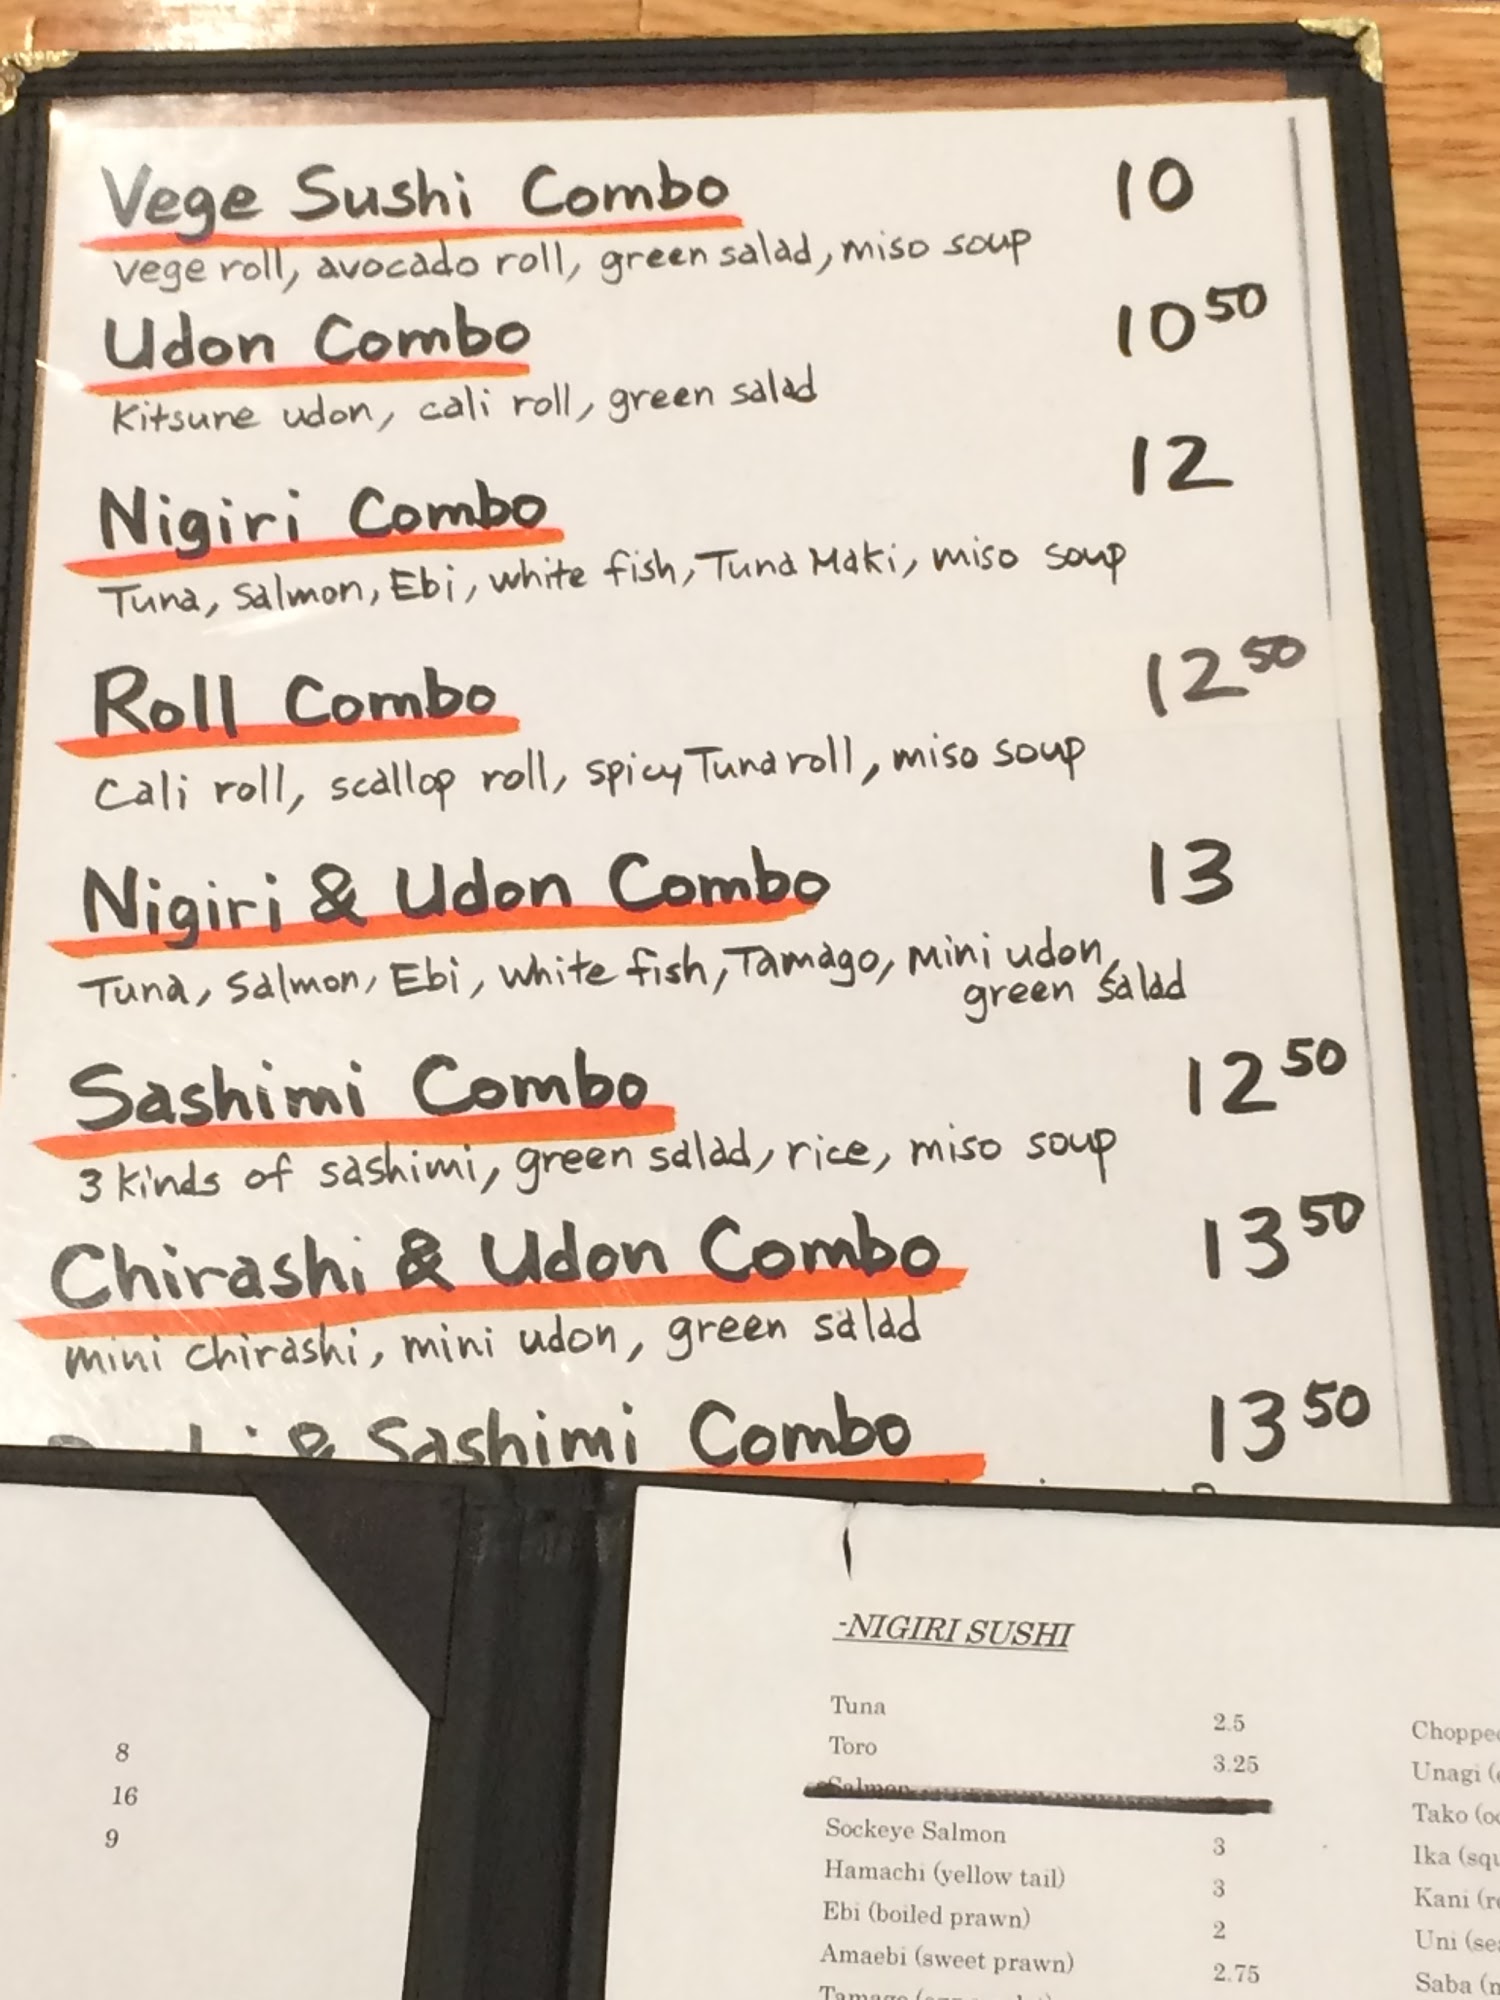 Vege Sushi Combo 10
vege roll, avocado roll, green salad, miso soup
Udon Combo 10 50
Kitsune udon, cali roll, green salad
Nigiri Combo 12
Tuna, Salmon, Ebi, white fish, Tuna Maki, miso soup
Roll Combo 12 50
Cali roll, scallop roll, spicy Tuna roll, miso soup
Nigiri & Udon Combo 13
Tuna, Salmon, Ebi, white fish, Tamago, mini udon,
green salad
Sashimi Combo 12 50
3 kinds of sashimi, green salad, rice, miso soup
Chirashi & Udon Combo 13 50
mini chirashi, mini udon, green salad
& Sashimi Combo 13 50
8
16
9
-NIGIRI SUSHI
Tuna 2.5
Toro 3.25
Salmon
Sockeye Salmon 3
Hamachi (yellow tail) 3
Ebi (boiled prawn) 2
Amaebi (sweet prawn) 2.75
Tamago
Chopped
Unagi (
Tako (
Ika (squ
Kani (
Uni (sea
Saba (